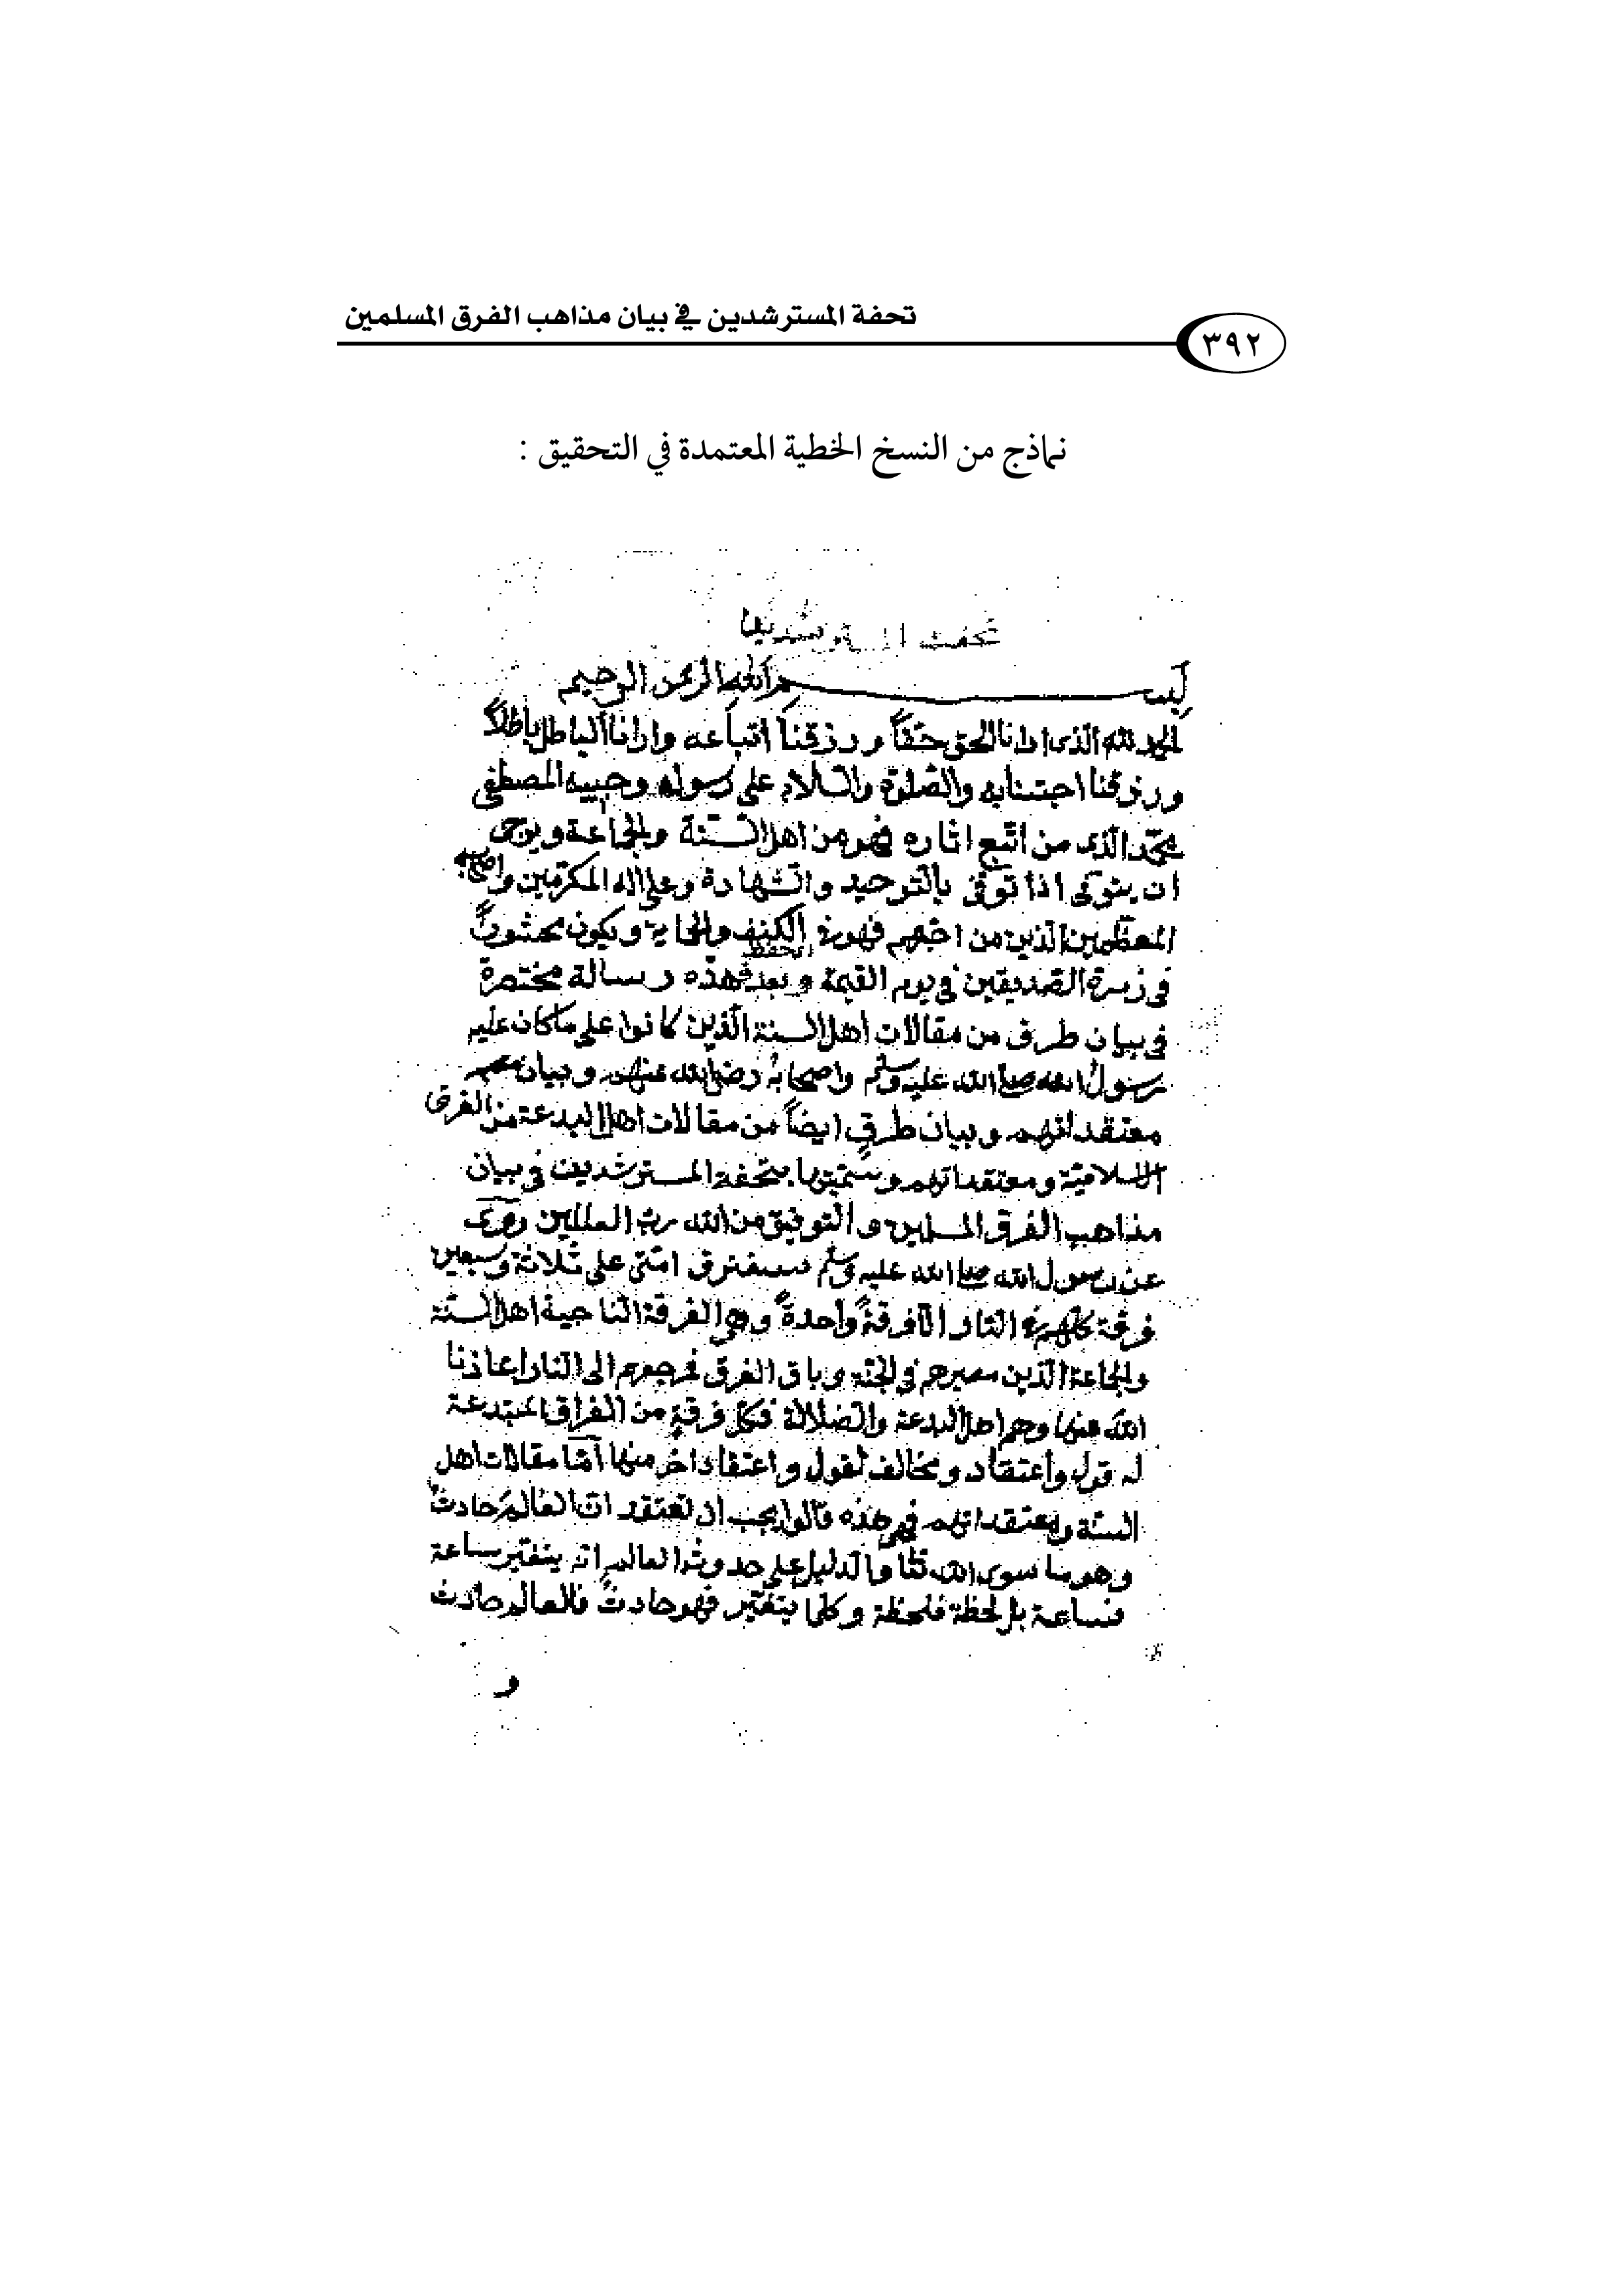 تحفة المسترشدين في بيان مذاهب الفرق المسلمين
٣٩٢
نماذج من النسخ الخطية المعتمدة في التحقيق :
بسم الله الرحمن الرحيم
الحمد لله الذى ارانا الحق حقاً ورزقنا اتباعه وارانا الباطل باطلاً
ورزقنا اجتنابه والصلوة والسلام على رسوله وحبيبه المصطفى
محمد الذى من اتبع اثاره فهو من اهل السنة والجماعة ويرجى
ان يتوفى اذا توفى بالتوحيد والشهادة وعلى اله المكرمين واصحابه
المعظمين الذين من احبهم فهو فى الكنف والحماية ويكون محشوراً
الحفظ
فى زمرة الصديقين فى يوم القيمة وبعد فهذه رسالة مختصرة
فى بيان طرف من مقالات اهل السنة الذين كانوا على ما كان عليه
رسول الله صلى الله عليه وسلم واصحابه رضى الله عنهم وبيان
معتقداتهم وبيان طرف ايضاً من مقالات اهل البدعة من الفرق
السلامية ومعتقداتهم وسميتها بتحفة المسترشدين فى بيان
مذاهب الفرق المسلمين والتوفيق من الله رب العلمين روى
عن رسول الله صلى الله عليه وسلم ستفترق امتى على ثلاثة وسبعين
فرقة كلهم فى النار الا فرقةً واحدةً وهى الفرقة الناجية اهل السنة
والجماعة الذين مصيرهم فى الجنة وباق الفرق مرجعهم الى النار اعاذنا
الله منها وهم اهل البدعة والضلالة فكل فرقة من الفراق المبتدعة
له قول واعتقاد ومخالف لقول واعتقاد اخر منها اما مقالات اهل
السنة ومعتقداتهم فهى هذه قالوا يجب ان نعتقد ان العالم حادث
وهو ما سوى الله تعا والدليل على حدوث العالم انه يتغير ساعة
فساعة بل لحظة فلحظة وكلما يتغير فهو حادث فالعالم حادث
و